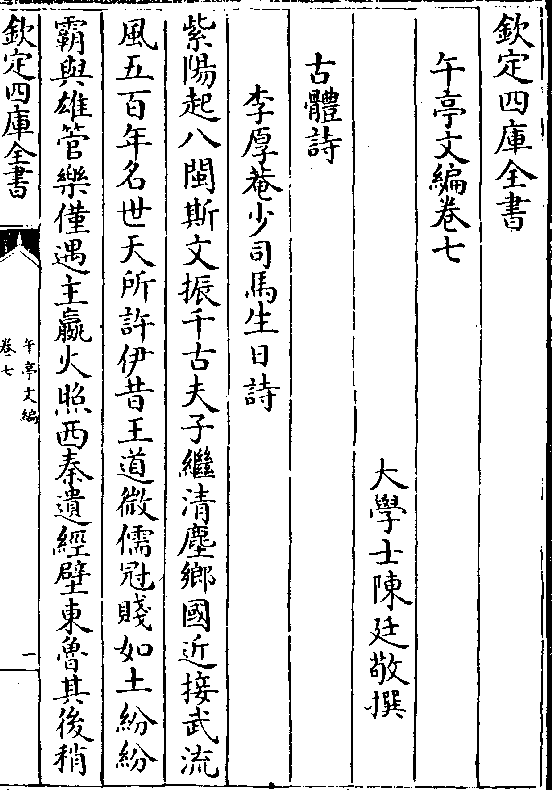 欽定四庫全書
午亭文編卷七
大學士陳廷敬撰
古體詩
李厚菴少司馬生日詩
紫陽起八閩斯文振千古夫子繼清塵鄉國近接武流
風五百年名世天所許伊昔王道微儒冠賤如土紛紛
霸與雄管樂僅遇主嬴火照西秦遺經壁東魯其後稍
欽定四庫全書
午亭文編
卷七
一